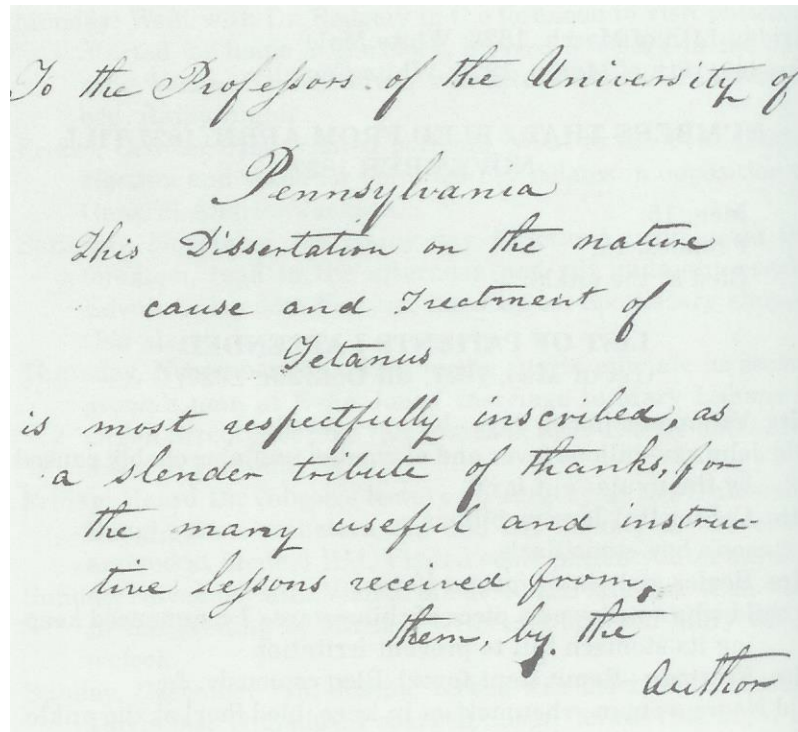 To the Professors of the University of
Pennsylvania
This Dissertation on the nature
cause and Treatment of
Tetanus
is most respectfully inscribed, as
a slender tribute of thanks, for
the many useful and instruc-
tive lessons received from
them, by the
Author